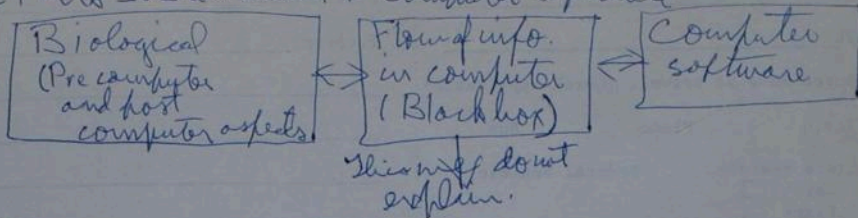 Biological
(Pre computer
and post
computer aspects
Flow of info.
in computer
(Black box)
Computer
software
do not
explain.